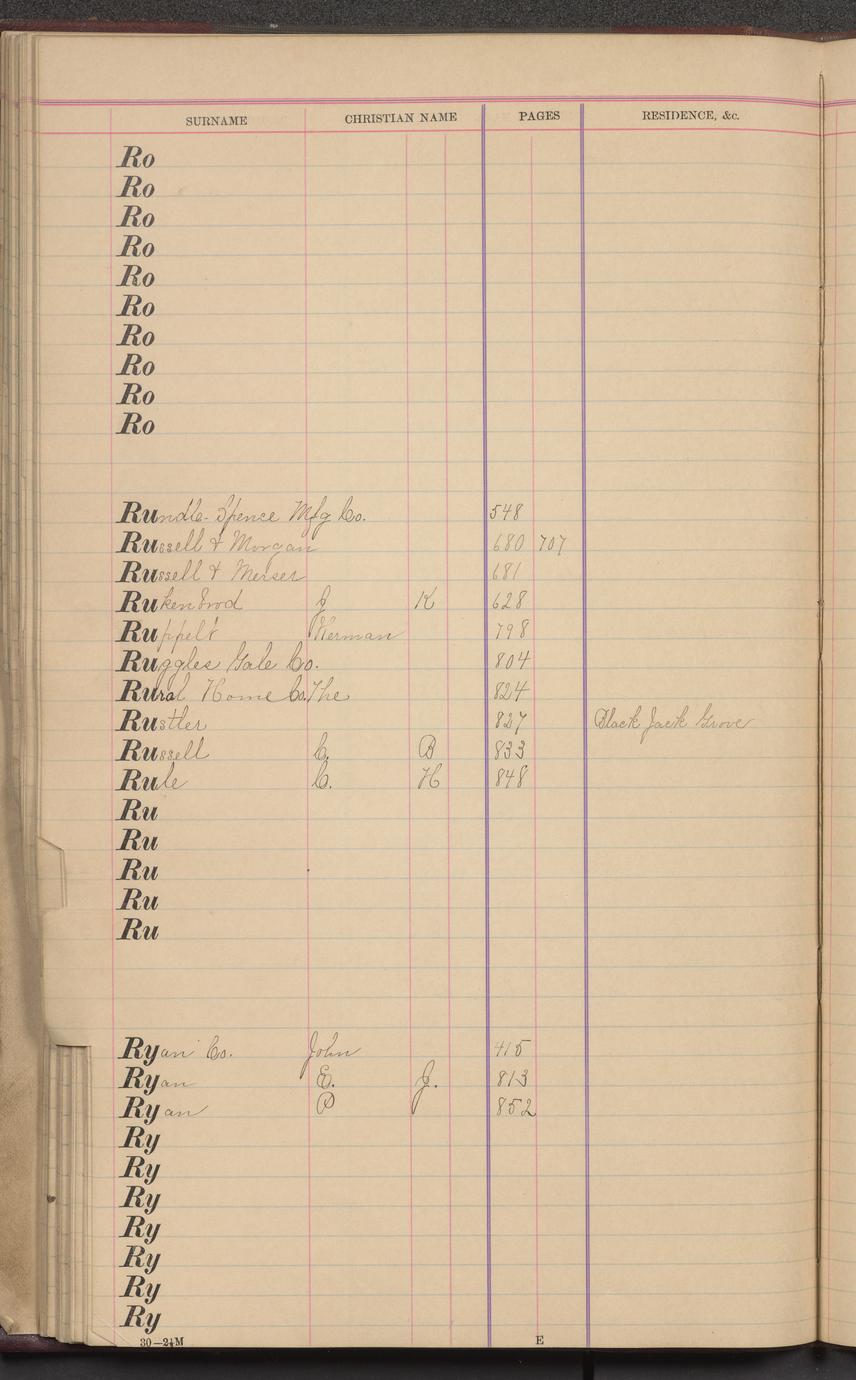 SURNAME CHRISTIAN NAME PAGES RESIDENCE, &c.
Ro
Ro
Ro
Ro
Ro
Ro
Ro
Ro
Ro
Ro
Rundle-Spence Mfg Co. 548
Russell & Morgan 680 707
Russell & Merser 681
Rukenbrod J K 628
Ruppelt Herman 798
Ruggles Gale Co. 804
Rural Home Co. The 824
Rustler 827 Black Jack Grove
Russell C. B 833
Rule C. H 848
Ru
Ru
Ru
Ru
Ru
Ryan Co. John 415
Ryan E. J. 813
Ryan P 852
Ry
Ry
Ry
Ry
Ry
Ry
Ry
30—2½M E